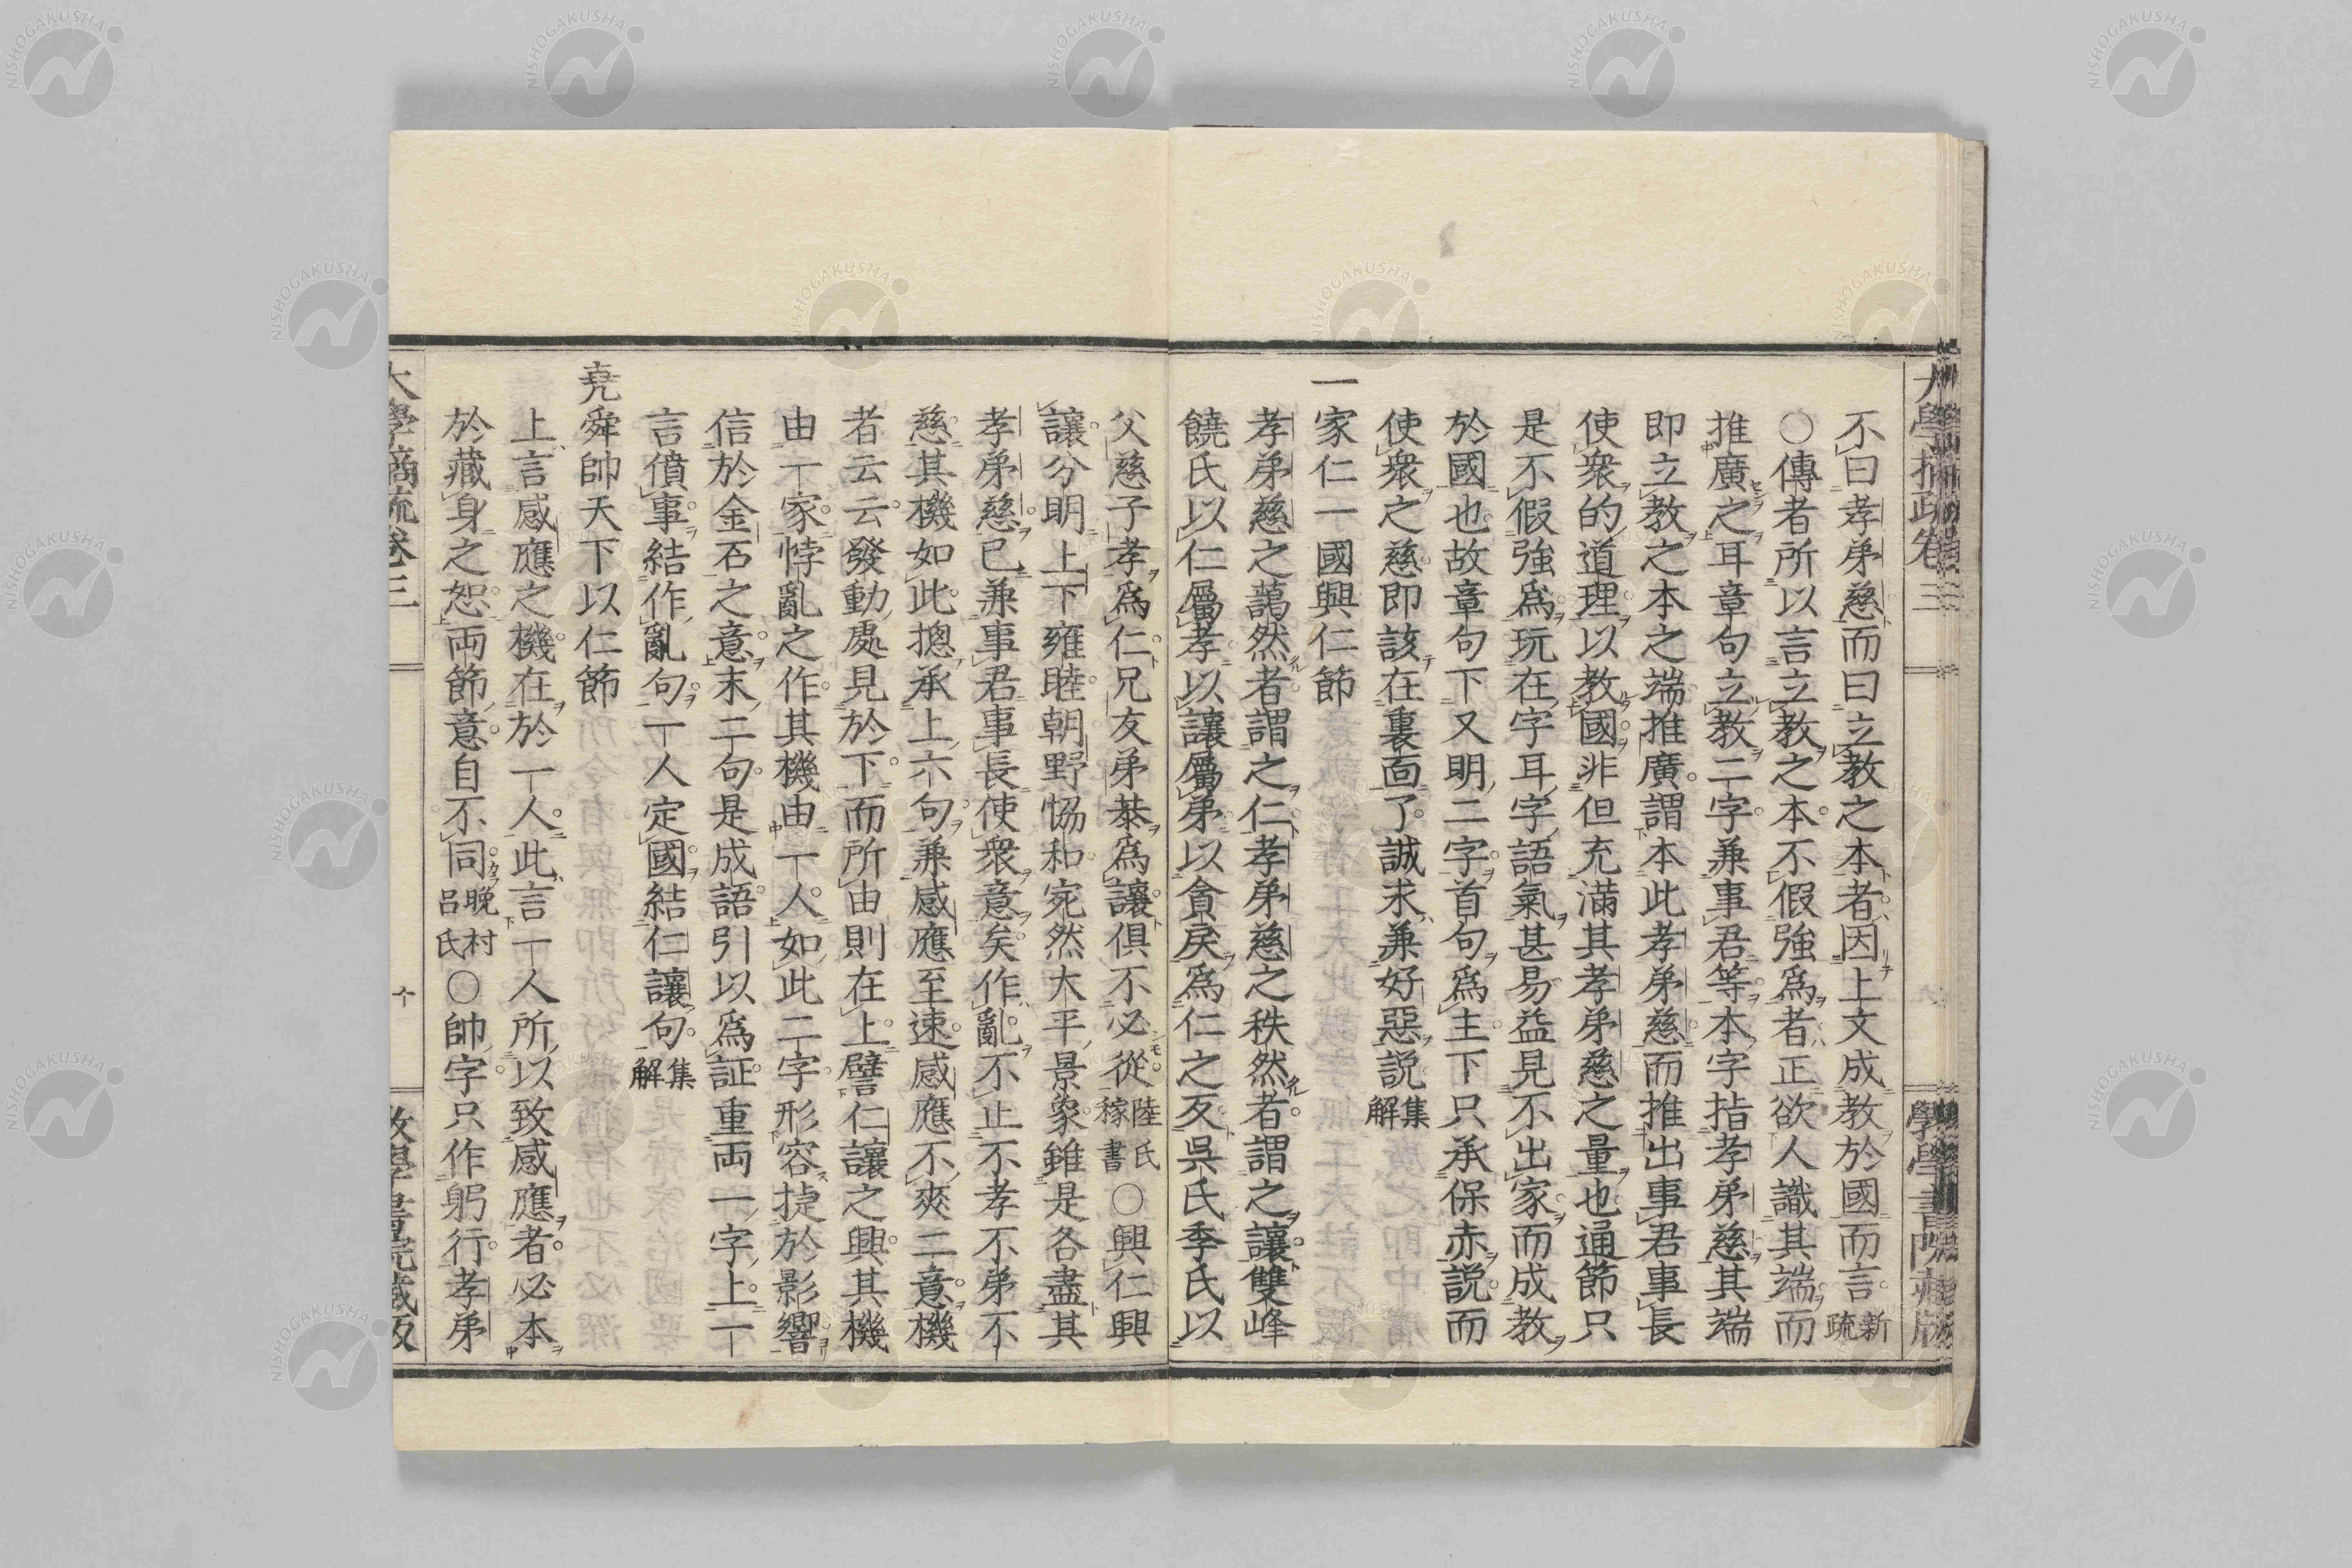 不曰孝弟慈而曰立教之本者因上文成教於國而言新疏
○傳者所以言立教之本不假強爲者正欲人識其端而
推廣之耳章句立教二字兼事君等本字指孝弟慈其端
即立教之本之端推廣謂本此孝弟慈而推出事君事長
使衆的道理以教國非但充滿其孝弟慈之量也通節只
是不假強爲玩在字耳字語氣甚易益見不出家而成教
於國也故章句下又明二字首句爲主下只承保赤説而
使衆之慈即該在裏面了誠求兼好惡説集解
一家仁一國興仁節
孝弟慈之藹然者謂之仁孝弟慈之秩然者謂之讓雙峰
饒氏以仁屬孝以讓屬弟以貪戾爲仁之反吳氏季氏以
父慈子孝爲仁兄友弟恭爲讓俱不必從陸氏稼書○興仁興
讓分明上下雍睦朝野恊和宛然大平景象雖是各盡其
孝弟慈已兼事君事長使衆意矣作亂不止不孝不弟不
慈其機如此摠承上六句兼感應至速感應不爽二意機
者云云發動處見於下而所由則在上譬仁讓之興其機
由一家悖亂之作其機由一人如此二字形容捷於影響
信於金石之意末二句是成語引以爲証重両一字上一
言僨事結作亂句一人定國結仁讓句集解
堯舜帥天下以仁節
上言感應之機在於一人此言一人所以致感應者必本
於藏身之恕両節意自不同晚村呂氏○帥字只作躬行孝弟
大學摘疏卷三